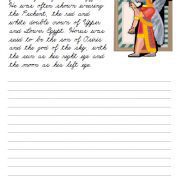 He was often shown wearing
the Pschent, the red and
white double crown of Upper
and Lower Egypt. Horus was
said to be the son of Osiris
and the god of the sky, with
the sun as his right eye and
the moon as his left eye.